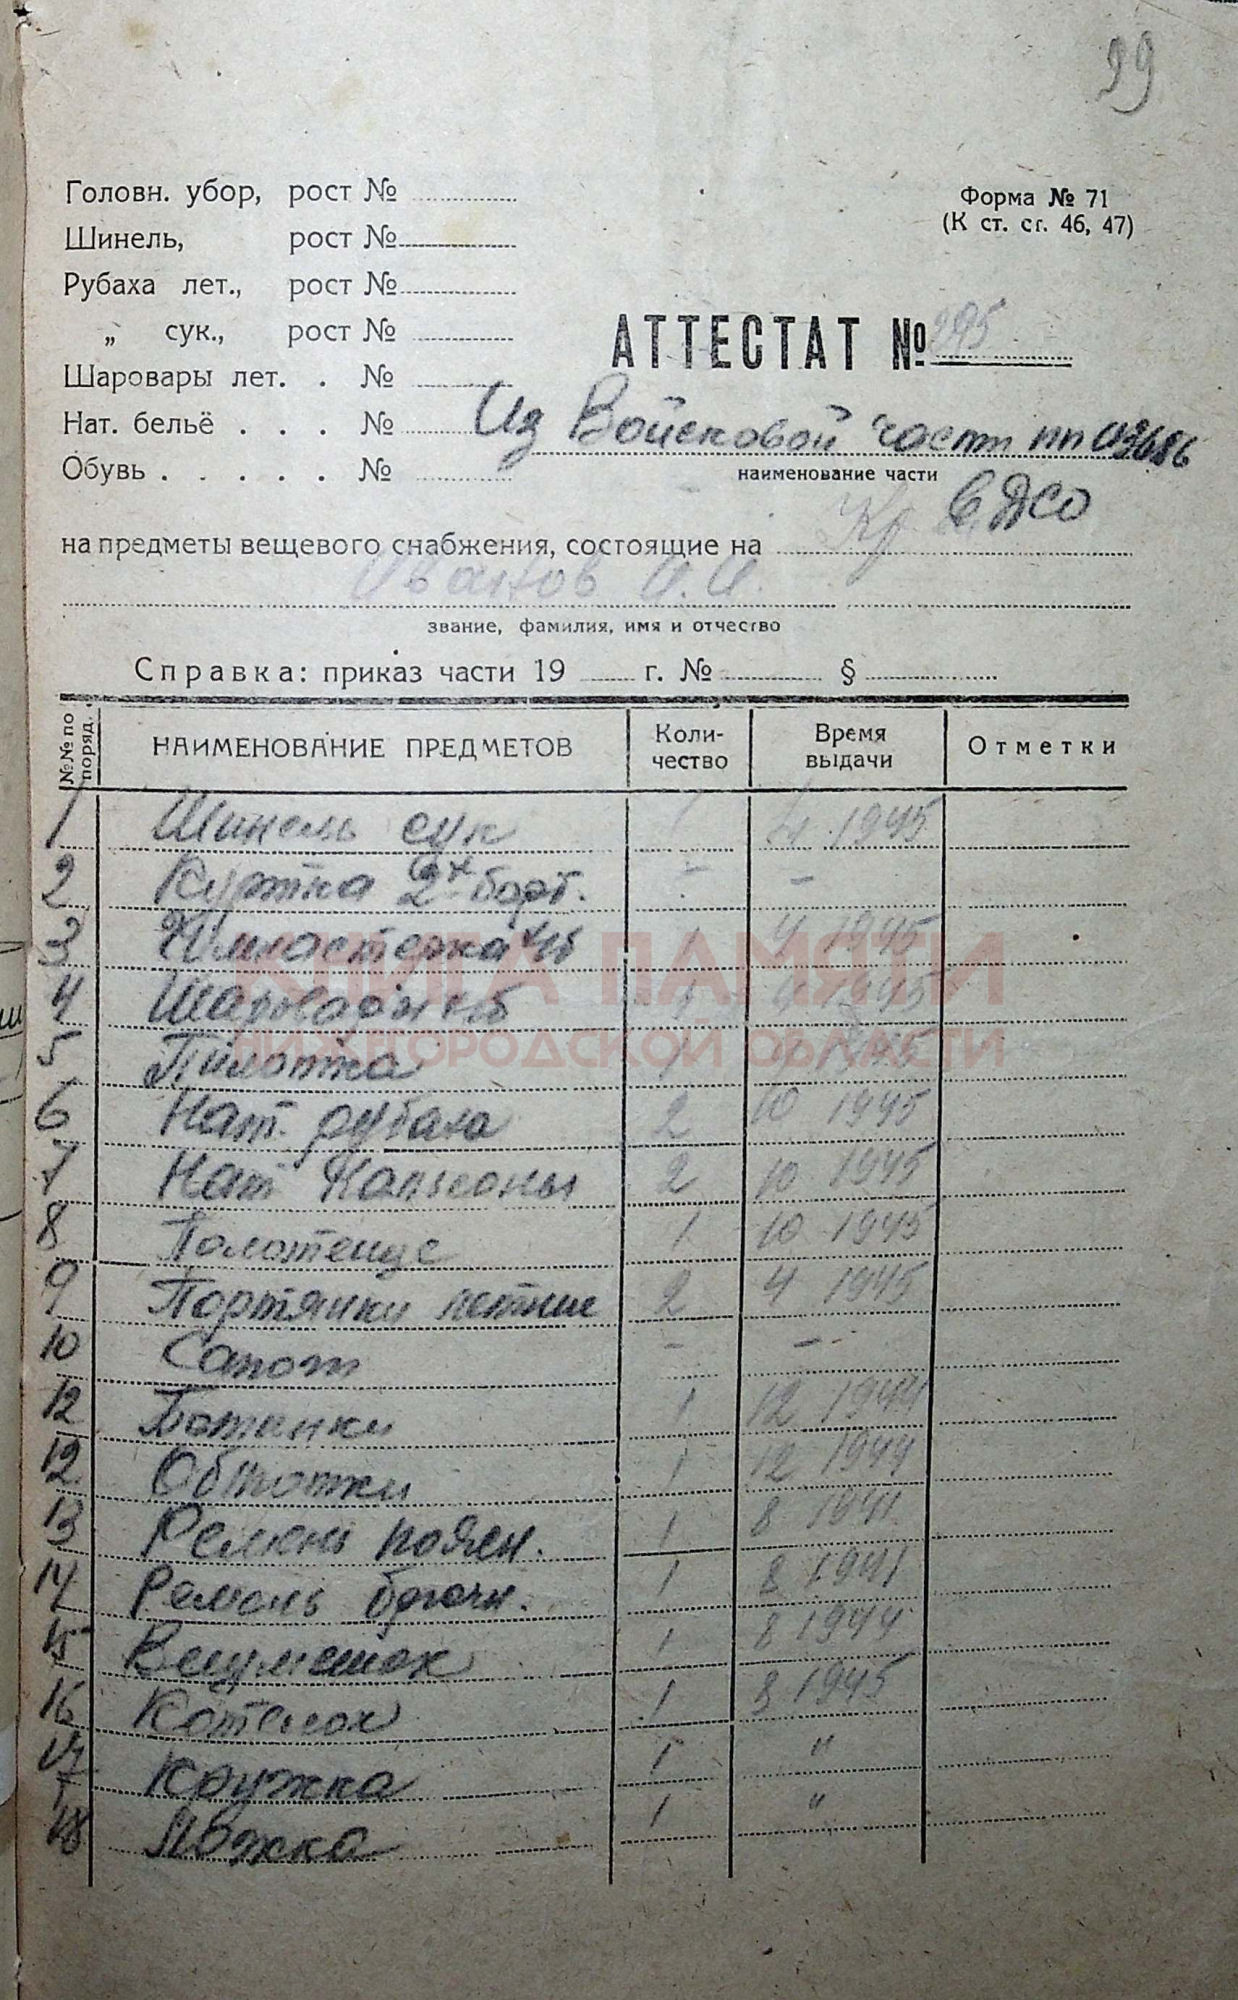 29
Головн. убор, рост №
Шинель, рост №
Рубаха лет., рост №
„ сук., рост №
Шаровары лет. . №
Нат. бельё . . . №
Обувь . . . . . №
Форма № 71
(К ст. ст. 46, 47)
АТТЕСТАТ № 295
Из Войсковой части пп 03686
наименование части
в ДСО
на предметы вещевого снабжения, состоящие на Кр
Иванов И.И.
звание, фамилия, имя и отчество
Справка: приказ части 19 г. № §
№№ по поряд. НАИМЕНОВАНИЕ ПРЕДМЕТОВ Коли-чество Время выдачи Отметки
1 Шинель сук 1 4 1945
2 Куртка 2х борт. - -
3 Гимнастерка хб 1 4 1945
4 Шаровары хб 1 4 1945
5 Пилотка 1 4 1945
6 Нат. рубаха 2 10 1945
7 Нат Кальсоны 2 10 1945
8 Полотенце 1 10 1945
9 Портянки летние 2 4 1945
10 Сапоги - -
12 Ботинки 1 12 1944
12 Обмотки 1 12 1944
13 Ремень поясн. 1 8 1941
14 Ремень брючн. 1 8 1941
15 Вещмешок 1 8 1944
16 Котелок 1 8 1945
17 Кружка 1 "
18 Ложка 1 "
КНИГА ПАМЯТИ
НИЖЕГОРОДСКОЙ ОБЛАСТИ